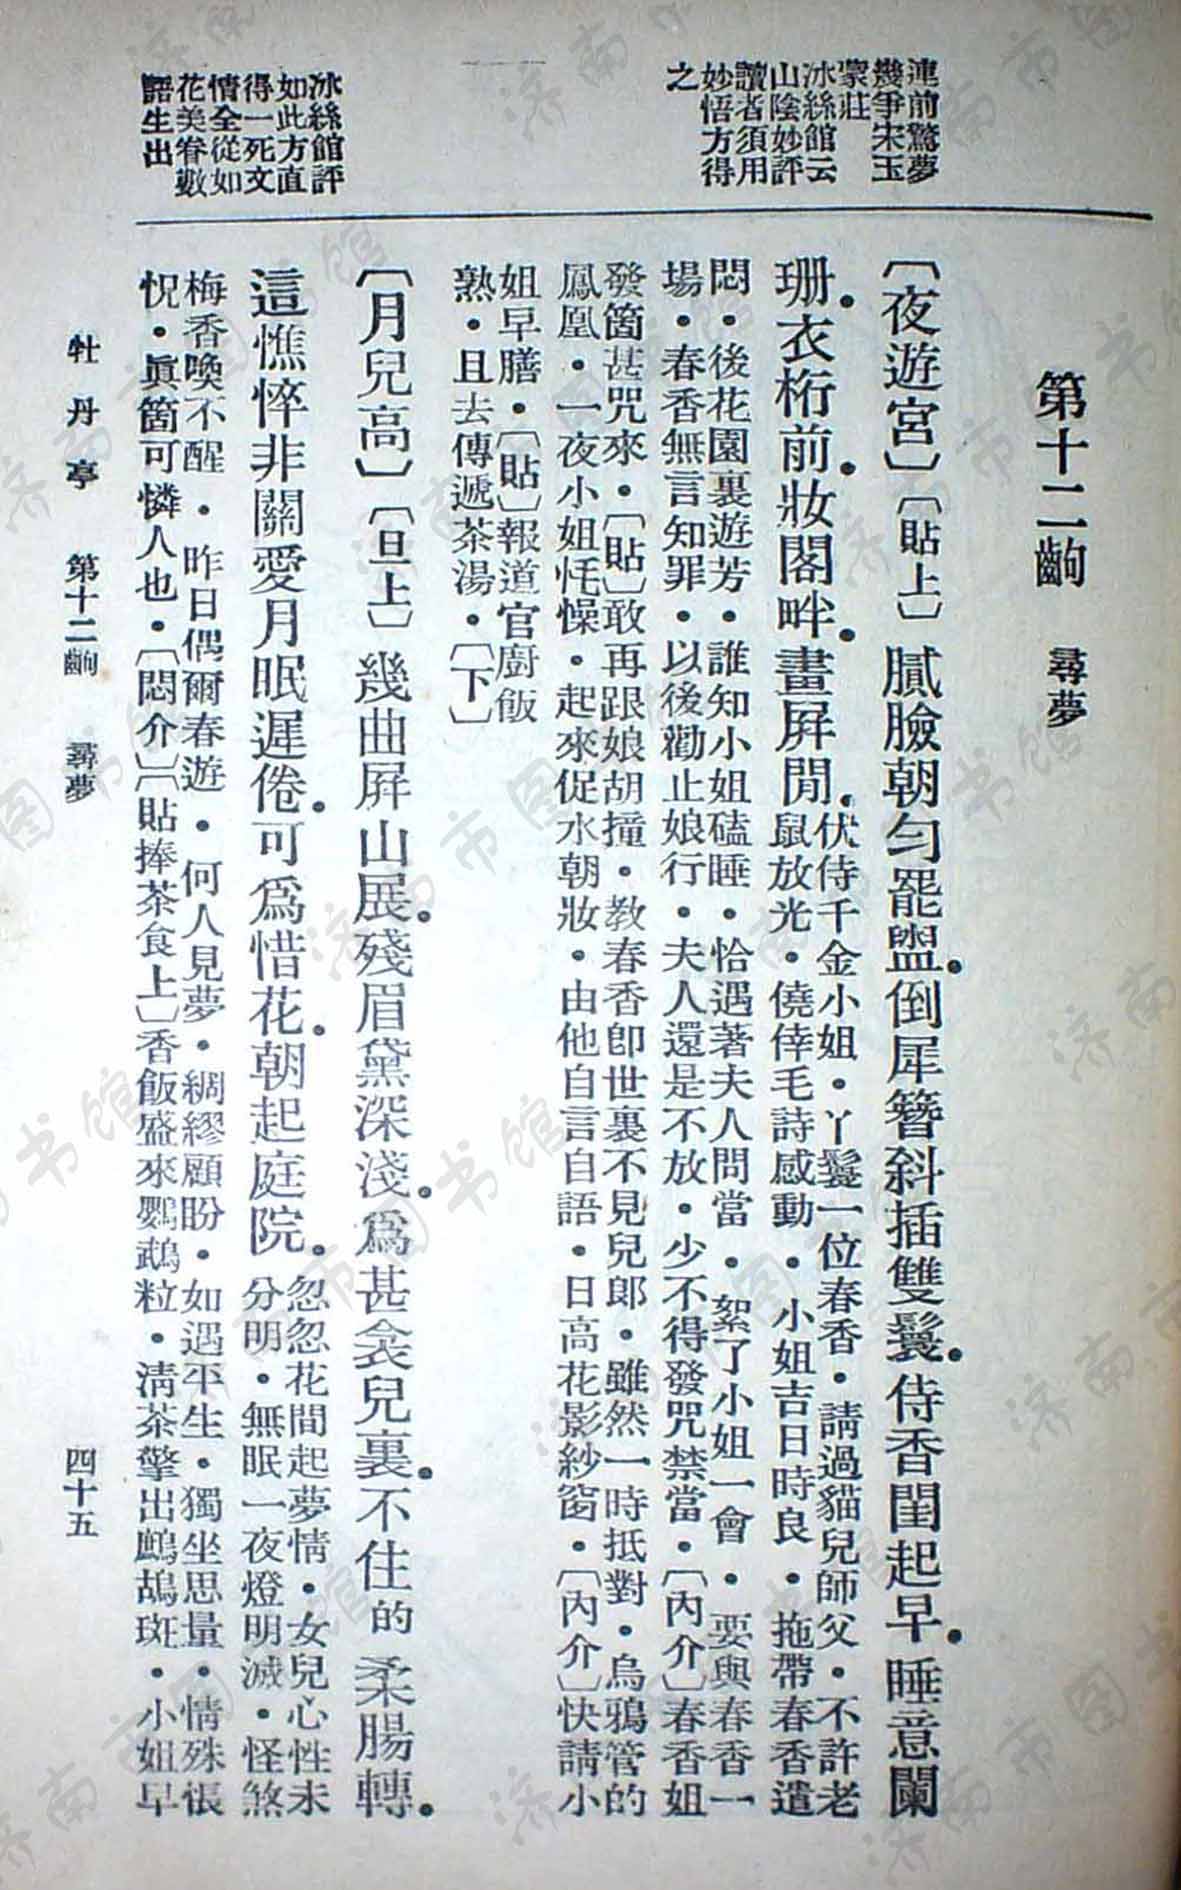 連前驚夢
幾爭宋玉
蒙莊
冰絲館云
山陰妙評
讀者須用
妙悟方得
之
冰絲館評
如此方直
得一死文
情全從如
花美眷數
語生出
第十二齣　尋夢
〔夜遊宮〕〔貼上〕膩臉朝勻罷盥。倒犀簪斜插雙鬟。侍香閨起早。睡意闌
珊。衣桁前。妝閣畔。畫屏閒。
伏侍千金小姐・丫鬟一位春香・請過貓兒師父・不許老
鼠放光・僥倖毛詩感動・小姐吉日時良・拖帶春香遣
悶・後花園裏遊芳・誰知小姐磕睡・恰遇著夫人問當・絮了小姐一會・要與春香一
場・春香無言知罪・以後勸止娘行・夫人還是不放・少不得發咒禁當・〔內介〕春香姐
發箇甚咒來・〔貼〕敢再跟娘胡撞・教春香卽世裏不見兒郞・雖然一時抵對・烏鴉管的
鳳凰・一夜小姐恍懆・起來促水朝妝・由他自言自語・日高花影紗窗・〔內介〕快請小
姐早膳・〔貼〕報道官廚飯
熟・且去傳遞茶湯・〔下〕
〔月兒高〕〔旦上〕幾曲屛山展。殘眉黛深淺。爲甚衾兒裏。不住的柔腸轉。
這憔悴非關愛月眠遲倦。可爲惜花。朝起庭院。
忽忽花間起夢情・女兒心性未
分明・無眠一夜燈明滅・怪煞
梅香喚不醒・昨日偶爾春遊・何人見夢・綢繆顧盼・如遇平生・獨坐思量・情殊悵
怳・眞箇可憐人也・〔悶介〕〔貼捧茶食上〕香飯盛來鸚鵡粒・淸茶擎出鷓鴣斑・小姐早
牡丹亭　第十二齣　尋夢　四十五
济南市图书馆